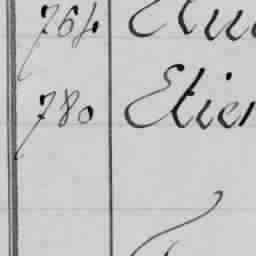 764
780 Etien